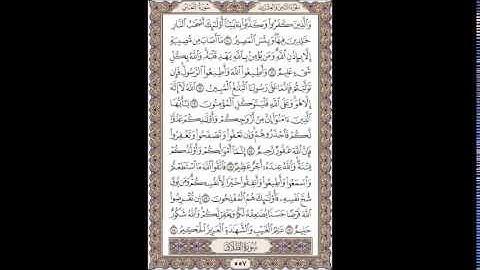 الجزء الثامن والعشرون سورة التغابن
وَالَّذِينَ كَفَرُوا وَكَذَّبُوا بِـَٔايَٰتِنَآ أُو۟لَٰٓئِكَ أَصْحَٰبُ النَّارِ
خَٰلِدِينَ فِيهَا وَبِئْسَ الْمَصِيرُ ١٠ مَآ أَصَابَ مِن مُّصِيبَةٍ
إِلَّا بِإِذْنِ اللَّهِ وَمَن يُؤْمِنۢ بِاللَّهِ يَهْدِ قَلْبَهُۥ وَاللَّهُ بِكُلِّ
شَىْءٍ عَلِيمٌ ١١ وَأَطِيعُوا اللَّهَ وَأَطِيعُوا الرَّسُولَ فَإِن
تَوَلَّيْتُمْ فَإِنَّمَا عَلَىٰ رَسُولِنَا الْبَلَٰغُ الْمُبِينُ ١٢ اللَّهُ لَآ إِلَٰهَ
إِلَّا هُوَ وَعَلَى اللَّهِ فَلْيَتَوَكَّلِ الْمُؤْمِنُونَ ١٣ يَٰٓأَيُّهَا
الَّذِينَ ءَامَنُوٓا إِنَّ مِنْ أَزْوَٰجِكُمْ وَأَوْلَٰدِكُمْ عَدُوًّا
لَّكُمْ فَاحْذَرُوهُمْ وَإِن تَعْفُوا وَتَصْفَحُوا وَتَغْفِرُوا
فَإِنَّ اللَّهَ غَفُورٌ رَّحِيمٌ ١٤ إِنَّمَآ أَمْوَٰلُكُمْ وَأَوْلَٰدُكُمْ
فِتْنَةٌ وَاللَّهُ عِندَهُۥٓ أَجْرٌ عَظِيمٌ ١٥ فَاتَّقُوا اللَّهَ مَا اسْتَطَعْتُمْ
وَاسْمَعُوا وَأَطِيعُوا وَأَنفِقُوا خَيْرًا لِّأَنفُسِكُمْ وَمَن يُوقَ
شُحَّ نَفْسِهِۦ فَأُو۟لَٰٓئِكَ هُمُ الْمُفْلِحُونَ ١٦ إِن تُقْرِضُوا
اللَّهَ قَرْضًا حَسَنًا يُضَٰعِفْهُ لَكُمْ وَيَغْفِرْ لَكُمْ وَاللَّهُ شَكُورٌ
حَلِيمٌ ١٧ عَٰلِمُ الْغَيْبِ وَالشَّهَٰدَةِ الْعَزِيزُ الْحَكِيمُ ١٨
سُورَةُ الطَّلَاقِ
٥٥٧